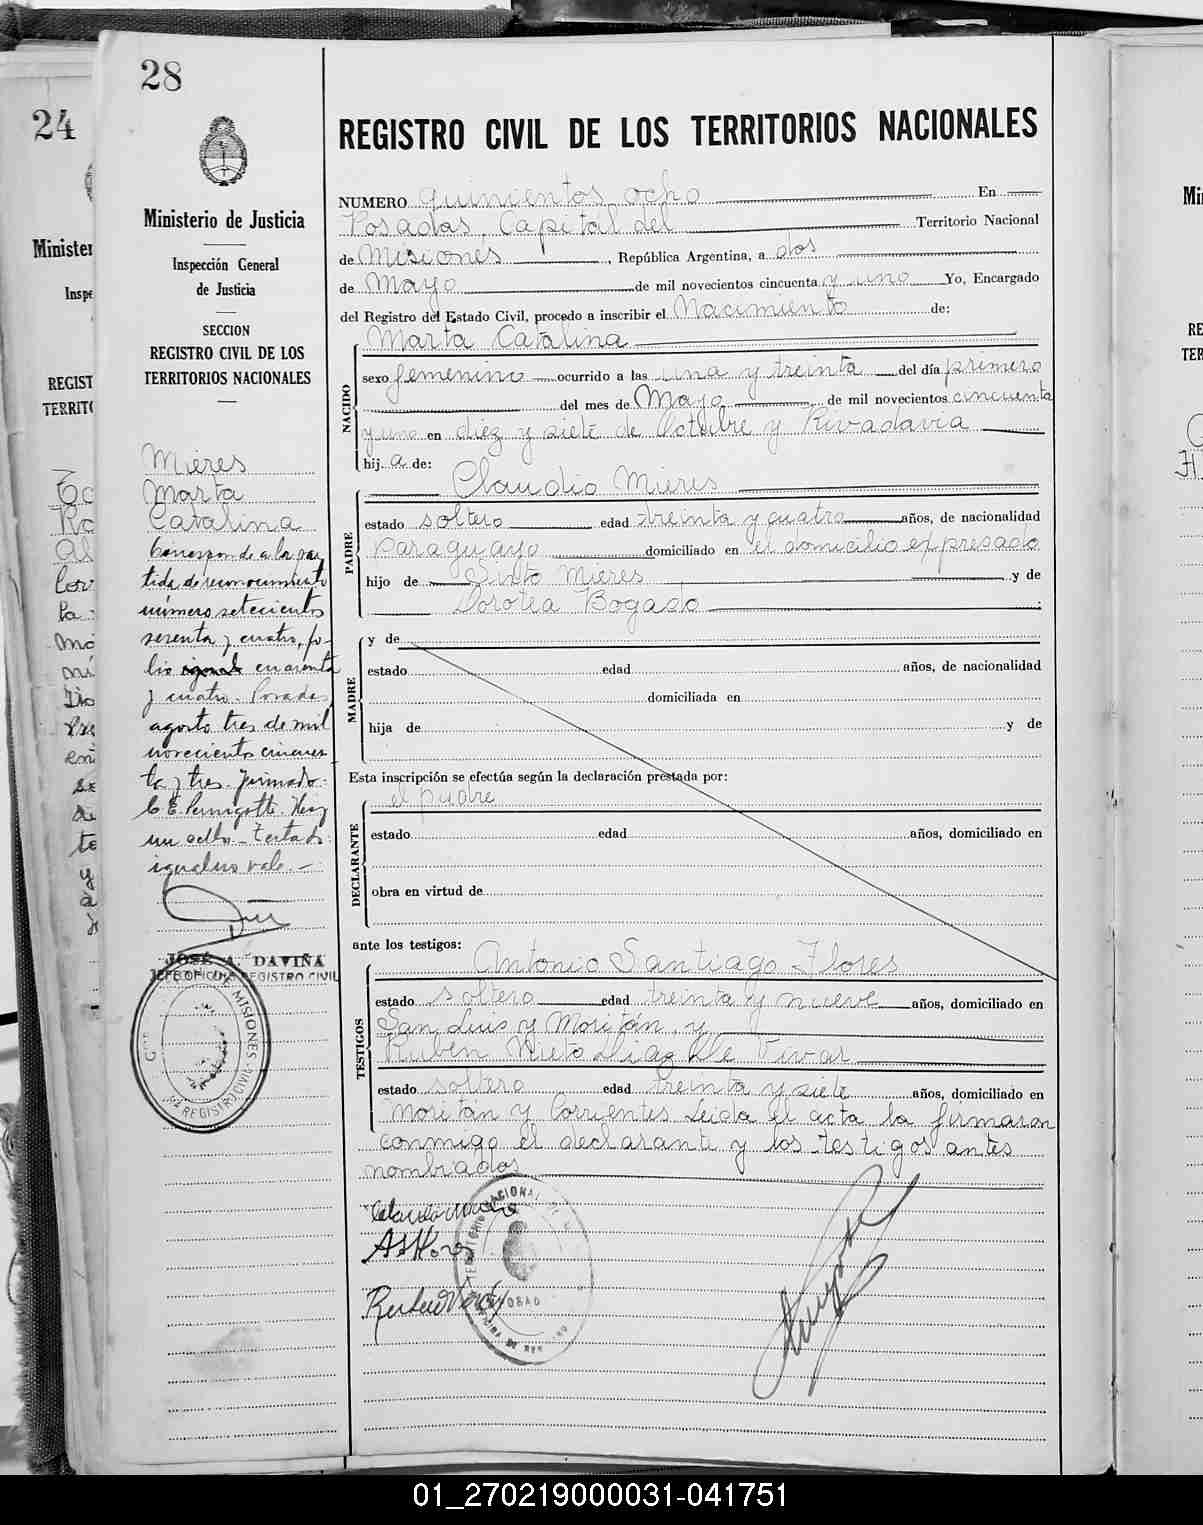 28
24
Ministerio de Justicia
Inspección General
de Justicia
SECCION
REGISTRO CIVIL DE LOS
TERRITORIOS NACIONALES
Mieres
Marta
Catalina
Corresponde a la par
tida de reconocimiento
número setecientos
sesenta y cuatro, fo-
lio igual cuarenta
y cuatro. Posadas
agosto tres de mil
novecientos cincuen
ta y tres. firmado:
Hay
un sello - Testado:
igual no vale. -
JOSÉ A. DAVIÑA
JEFE OFICINA REGISTRO CIVIL
MISIONES
REGISTRO CIVIL
REGISTRO CIVIL DE LOS TERRITORIOS NACIONALES
NUMERO quinientos ocho En
Posadas, Capital del Territorio Nacional
de Misiones, República Argentina, a dos
de Mayo de mil novecientos cincuenta y uno Yo, Encargado
del Registro del Estado Civil, procedo a inscribir el Nacimiento de:
Marta Catalina
NACIDO
sexo femenino ocurrido a las una y treinta del día primero
del mes de Mayo de mil novecientos cincuenta
y uno en diez y siete de Octubre y Rivadavia
hij a de:
Claudio Mieres
PADRE
estado soltero edad treinta y cuatro años, de nacionalidad
paraguayo domiciliado en el domicilio expresado
hijo de Sixto Mieres y de
Dorotea Bogado
MADRE
y de
estado edad años, de nacionalidad
domiciliada en
hija de y de
Esta inscripción se efectúa según la declaración prestada por:
el padre
DECLARANTE
estado edad años, domiciliado en
obra en virtud de
ante los testigos:
Antonio Santiago Flores
TESTIGOS
estado soltero edad treinta y nueve años, domiciliado en
San Luis y Moritán y
Ruben Nieto Diaz de Vivar
estado soltero edad treinta y siete años, domiciliado en
Moritán y Corrientes Leida el acta la firmaron
conmigo el declarante y los testigos antes
nombrados
01_270219000031-041751